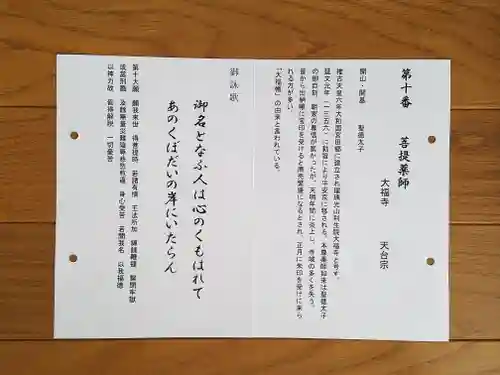 第十番　菩提薬師
大福寺　天台宗
開山・開基　聖徳太子
推古天皇六年大和国宮田郷に建立され瑠璃光山利生院大福寺と号す。
延文元年(一三五六)に勅命により平安京に移される。本尊薬師如来は聖徳太子
の御自刻、朝家の尊信が篤かったが、天明年間に炎上し、寺域の多くを失う。
昔から出納帳に宝印を受けると商売繁盛になるとされ、正月に朱印を受けに来ら
れる方が多い。
「大福帳」の由来と言われている。
御詠歌
御名となふ人は心のくもはれて
あのくぼだいの岸にいたらん
第十大願　願我来世　得菩提時　若諸有情　王法所加　縛録鞭撻　繋閉牢獄
或当刑戮　及餘無量災難陵辱悲愁煎逼　身心受苦　若聞我名　以我福徳
以神力故　皆得解脱　一切憂苦